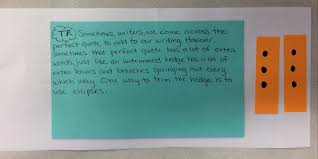 TP. Sometimes, writers, we come across the
perfect quote to add to our writing. However,
sometimes that perfect quote has a lot of extra
words, just like an untrimmed hedge has a lot of
extra leaves and branches springing out every
which way. One way to trim the hedge is to
use ellipses.